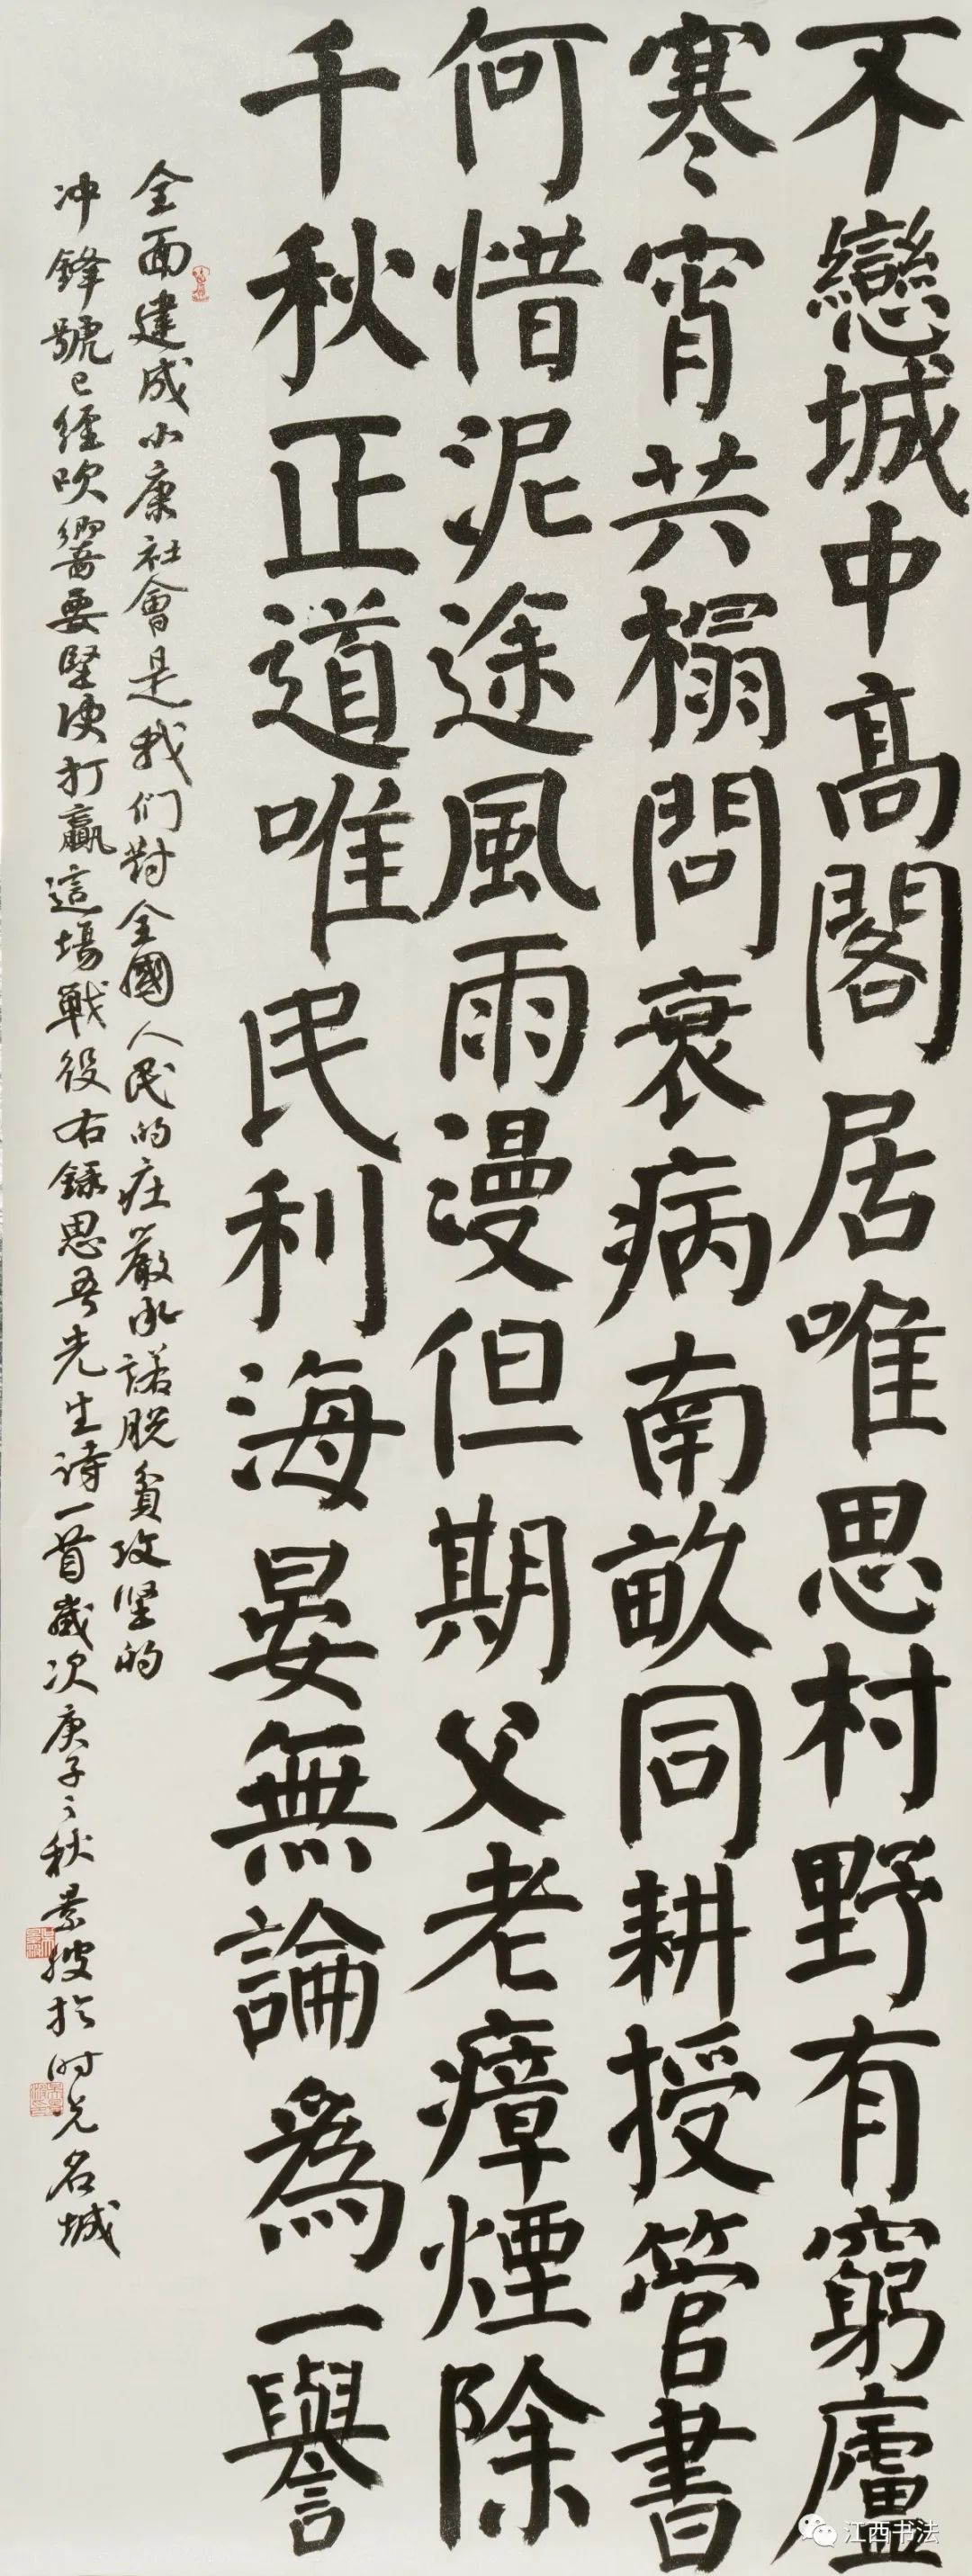 不戀城中高閣居唯思村野有窮廬
寒宵共榻問衰病南畝同耕授管書
何惜泥途風雨漫但期父老瘴煙除
千秋正道唯民利海晏無論為一譽
全面建成小康社會是我们對全國人民的莊嚴承諾脫貧攻坚的
冲鋒號已經吹響要堅決打贏這場戰役右錄思吾先生诗一首歲次庚子之秋景坡於时光名城
江西书法